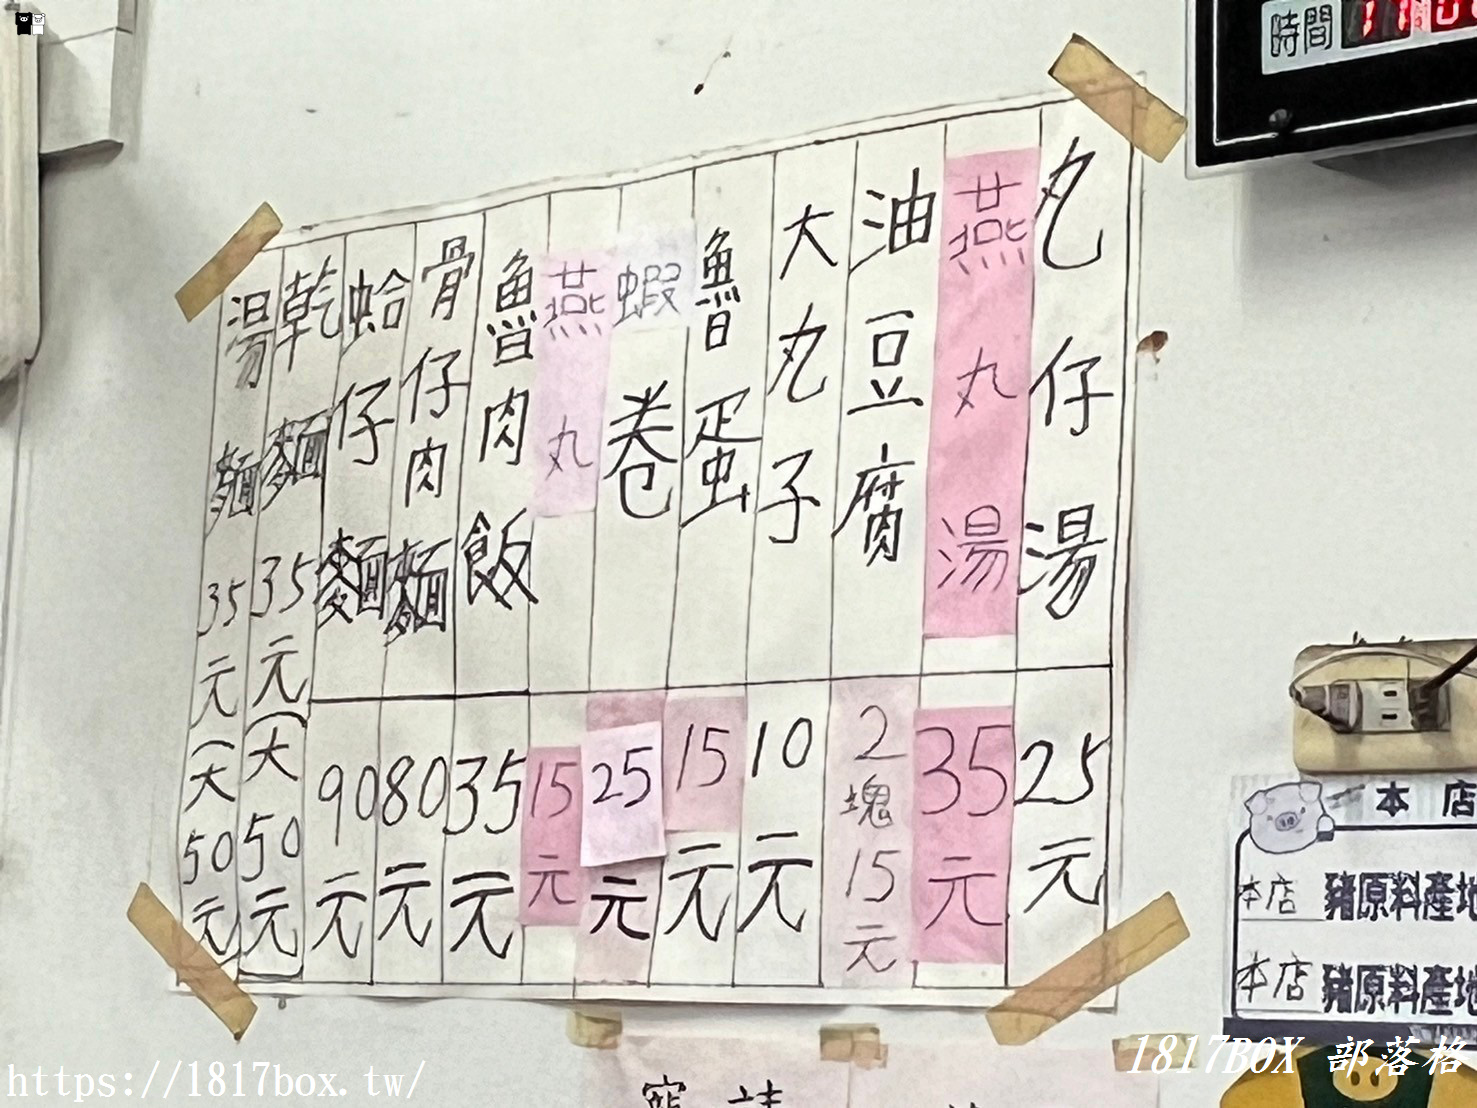 時間
丸仔湯 25元
燕丸湯 35元
油豆腐 2塊15元
大丸子 10元
魯蛋 15元
蝦卷 25元
燕丸 15元
魯肉飯 35元
骨仔肉麵 80元
蛤仔麵 90元
乾麵 35元(大50元
湯麵 35元(大50元
本店
本店 豬原料產地
本店 豬原料產地
1817BOX 部落格
https://1817box.tw/